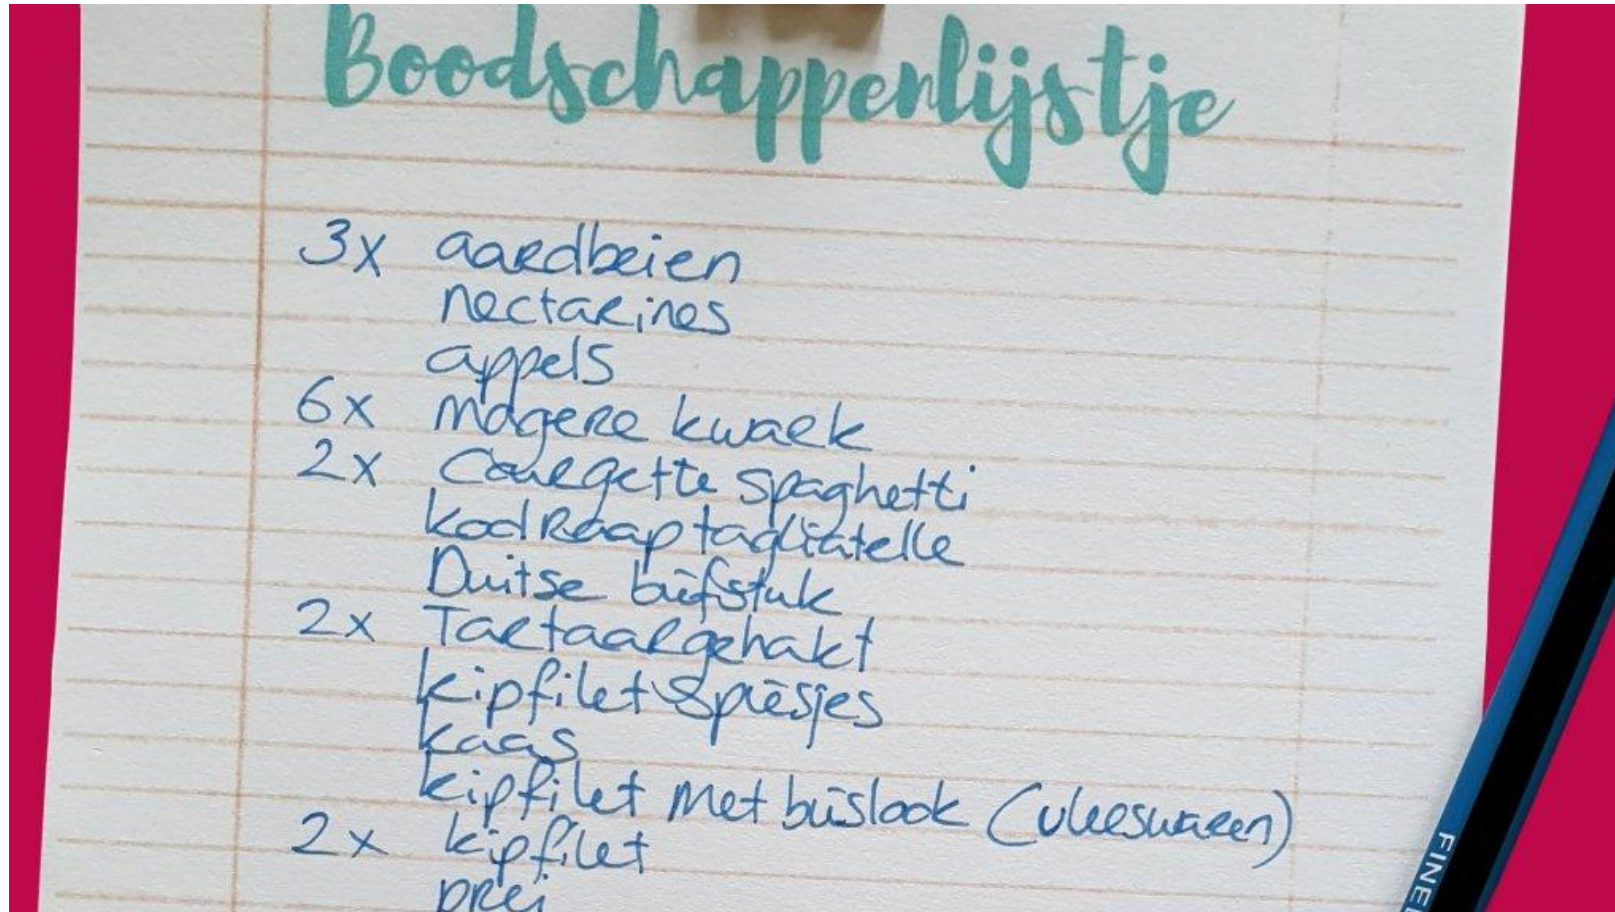 Boodschappenlijstje
3x aardbeien
nectarines
appels
6x magere kwark
2x Courgette spaghetti
koolraap tagliatelle
Duitse biefstuk
2x Tartaargehakt
kipfilet spiesjes
kaas
kipfilet met bieslook (vleeswaren)
2x kipfilet
prei
FINE